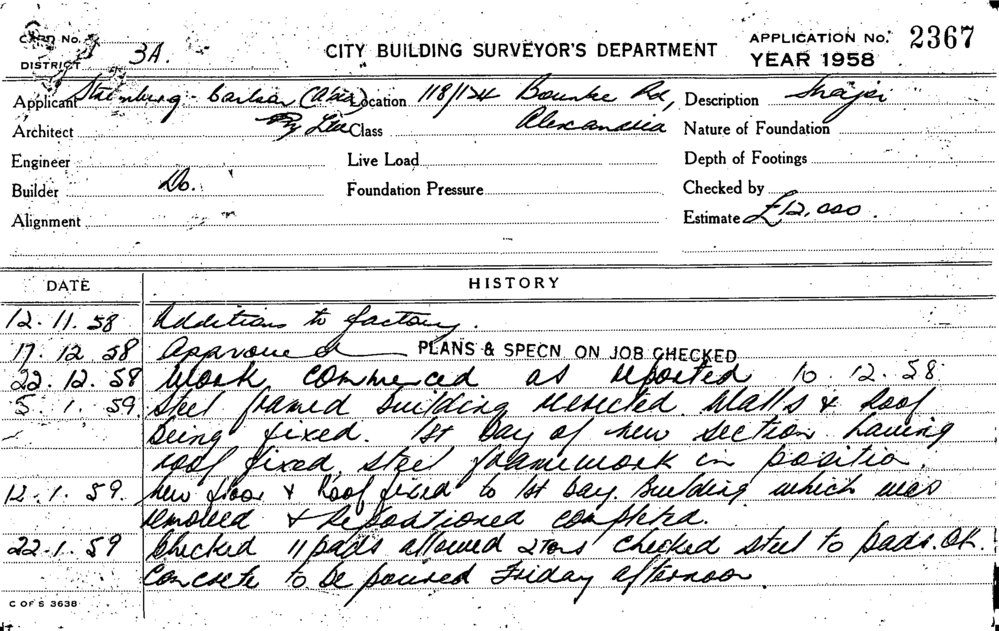 CARD No.
DISTRICT 3A.
CITY BUILDING SURVEYOR'S DEPARTMENT
APPLICATION No. 2367
YEAR 1958
Applicant Steinberg - Carlson Location 118/124 Bourke Rd, Description
Architect Pty Ltd Class Alexandria Nature of Foundation
Engineer Live Load Depth of Footings
Builder Do. Foundation Pressure Checked by
Alignment Estimate £12,000.
DATE HISTORY
12.11.58 Additions to factory.
17.12.58 Approved PLANS & SPECN ON JOB CHECKED
22.12.58 Work commenced as reported 10.12.58.
5.1.59 Steel framed building reerected. Walls & Roof
being fixed. 1st Bay of new section having
roof fixed, steel framework in position.
12.1.59. New floor & Roof fixed to 1st Bay. Building which was
removed & Repositioned completed.
22.1.59 Checked 11 pads allowed 2 tons checked steel to pads. OK.
Concrete to be poured Friday afternoon.
C OF S 3638